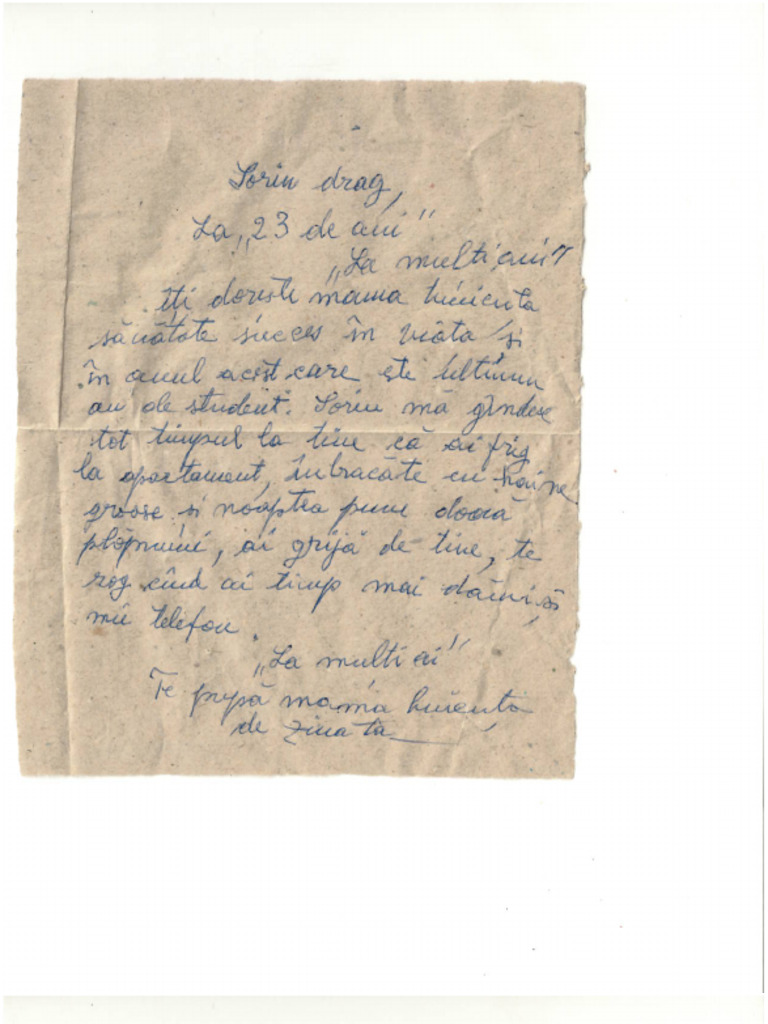 Sorin drag,
La „23 de ani"
„La multi ani"
îți dorește mama
sănătate succes în viata si
în anul acest care este ultimun
an de student. Sorin mă gîndesc
tot timpul la tine că ai frig
la apartament, îmbracăte cu haine
groose si noaptea pune două
plăpmini, ai grijă de tine, te
rog cînd ai timp mai dămi și
mie telefon.
„La multi ai"
Te pupă mama
de ziua ta